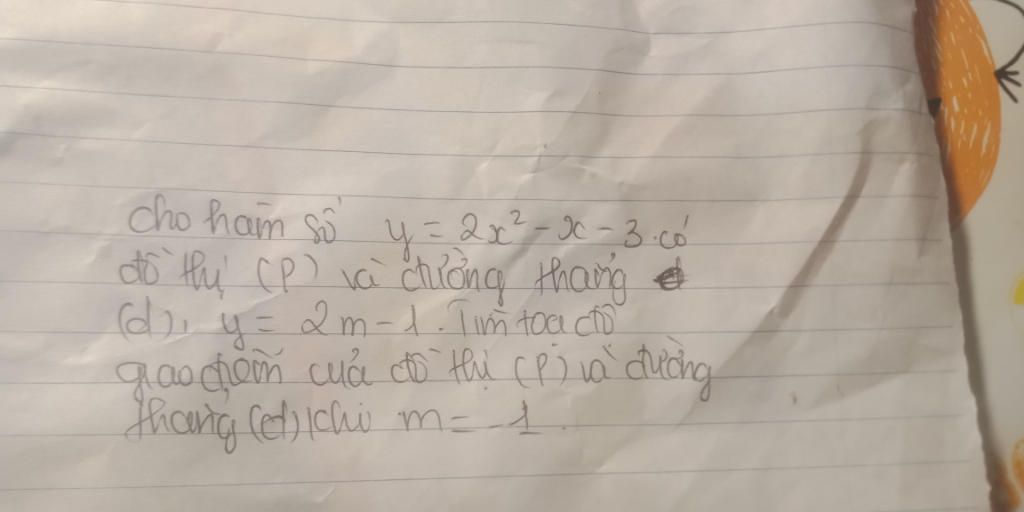 cho hàm số y = 2x² - x - 3. có
đồ thị (P) và đường thẳng
(d), y = 2m - 1. Tìm toạ độ
giao điểm của đồ thị (P) và đường
thẳng (d) khi m = -1.